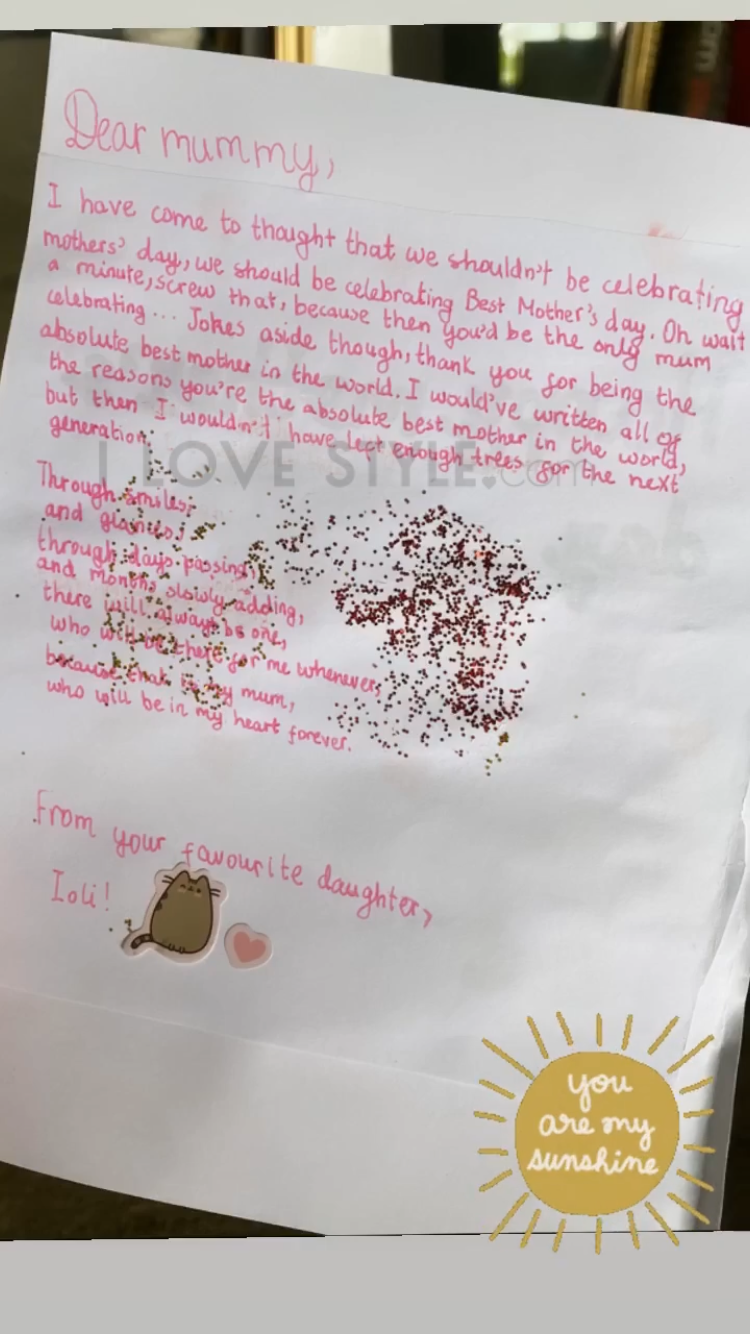 Dear mummy,
I have come to thought that we shouldn't be celebrating
mothers' day, we should be celebrating Best Mother's day. Oh wait
a minute, screw that, because then you'd be the only mum
celebrating... Jokes aside though, thank you for being the
absolute best mother in the world. I would've written all of
the reasons you're the absolute best mother in the world,
but then I wouldn't have left enough trees for the next
generation.
I LOVE STYLE.com
Through smiles,
and glances,
through days passing,
and months slowly adding,
there will always be one,
who will be there for me whenever,
because that is my mum,
who will be in my heart forever.
From your favourite daughter,
Ioli!
you
are my
sunshine